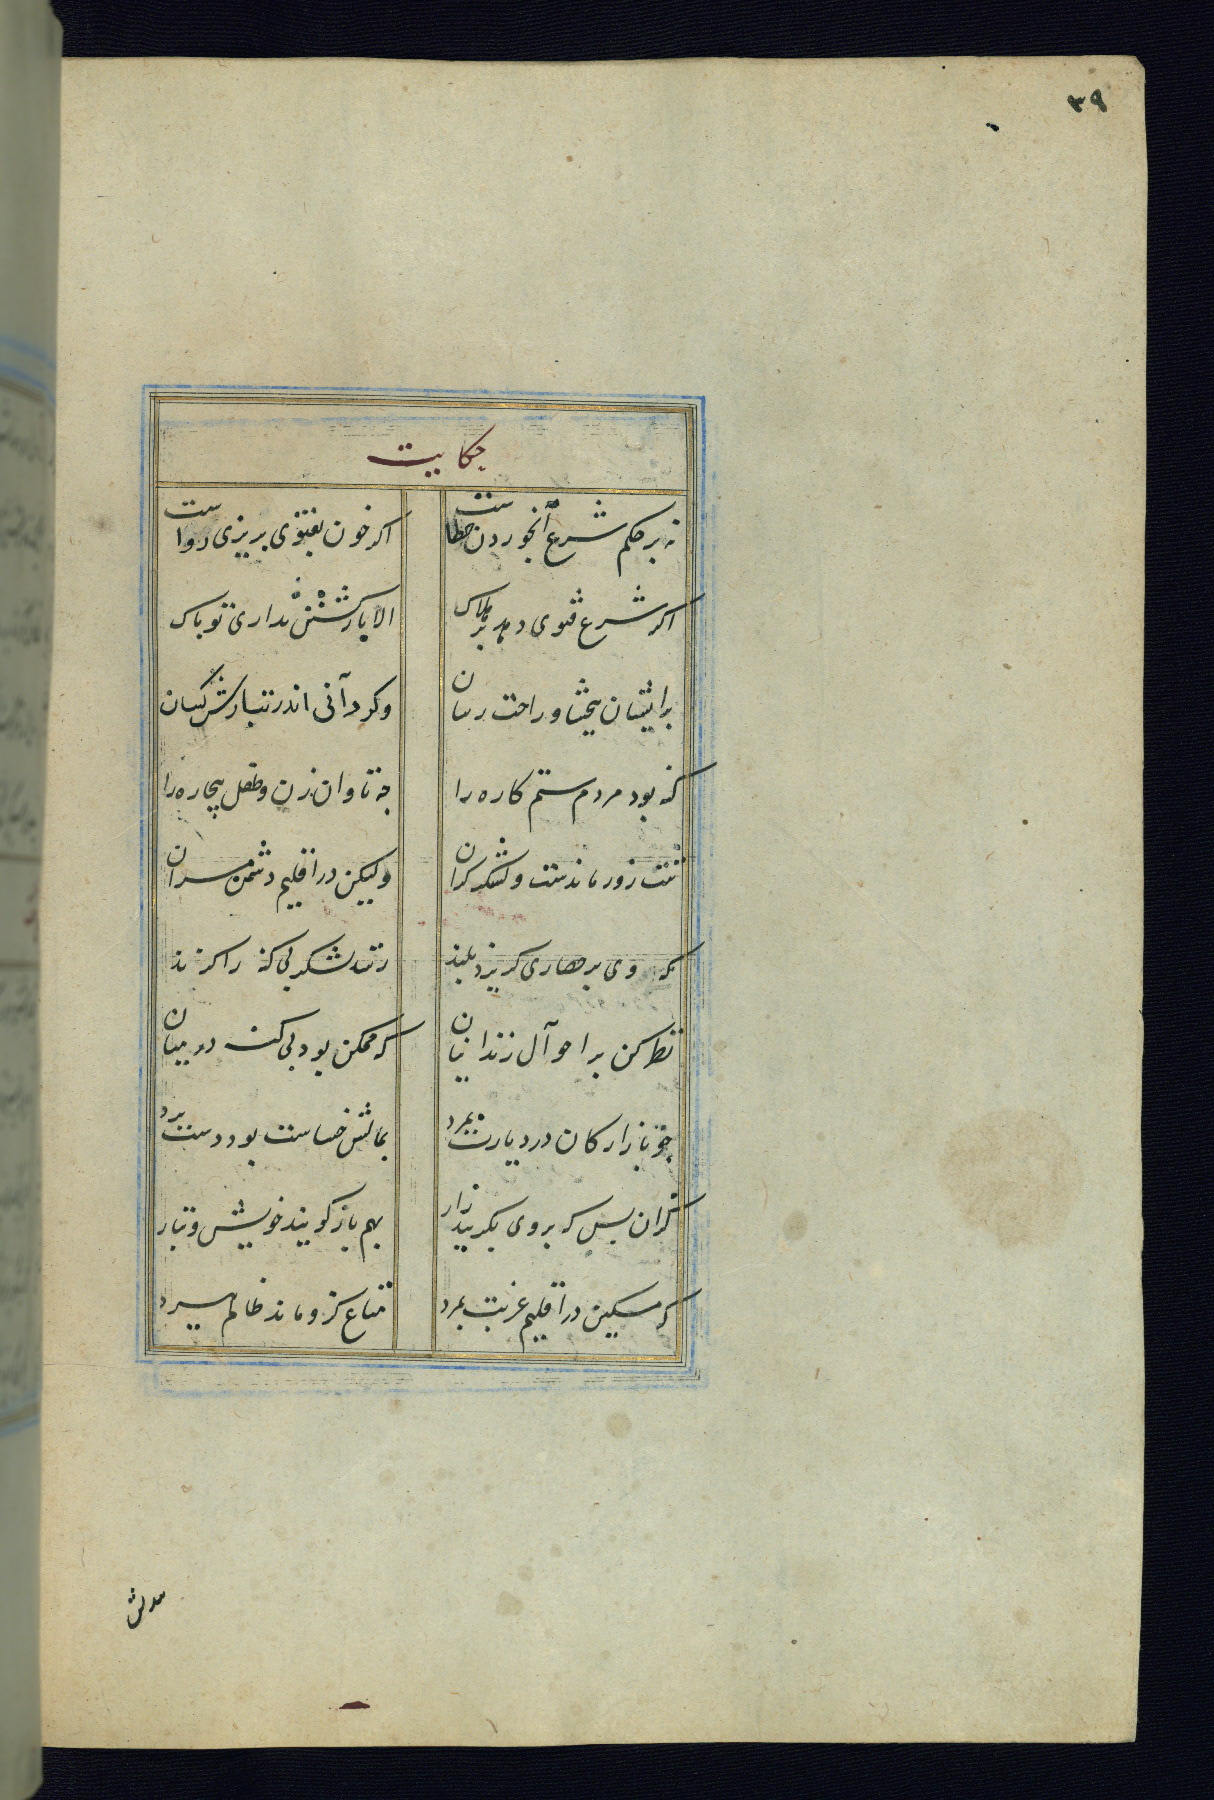 ۳۹
حکایت
نه بر حکم شرع آبخوردن خطاست اکر خون بفتوی بریزی رواست
اکر شرع فتوی دهد بر هلاک الا یا ز کشتن نداری تو باک
وکر دانی اندر تبارش کسان بر ایشان ببخشا و راحت رسان
کنه بود مردم ستم کاره را چه تاوان زن و طفل بیچاره را
تنت زورماندست و لشکر کران ولیکن در اقلیم دشمن مران
که وی بر حصاری کریزد بلند رسد لشکر بی کنه را کزند
نظر کن بر احوال زندانیان که ممکن بود بی کنه در میان
چو بازارکان در دیارت بمرد بمالش خساست بود دست برد
کزان پس که بر وی بکریند زار بهم باز کویند خویش و تبار
که مسکین در اقلیم غربت بمرد متاع کزو ماند ظالم ببرد